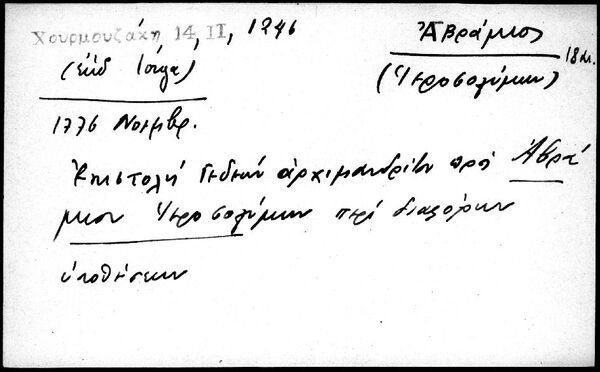 Χουρμουζάκη 14, II, 1246
Ἀβράμιος
18 αι.
(Ἱεροσολύμων)
1776 Νοεμβρ.
Ἐπιστολή Γεδεών ἀρχιμανδρίτου πρός Ἀβρά
μιον Ἱεροσολύμων περί διαφόρων
ὑποθέσεων